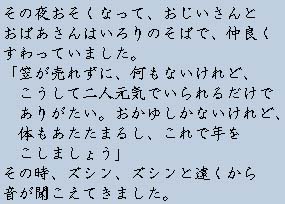 その夜おそくなって、おじいさんと
おばあさんはいろりのそばで、仲良く
すわっていました。
「笠が売れずに、何もないけれど、
こうして二人元気でいられるだけで
ありがたい。おかゆしかないけれど、
体もあたたまるし、これで年を
こしましょう」
その時、ズシン、ズシンと遠くから
音が聞こえてきました。